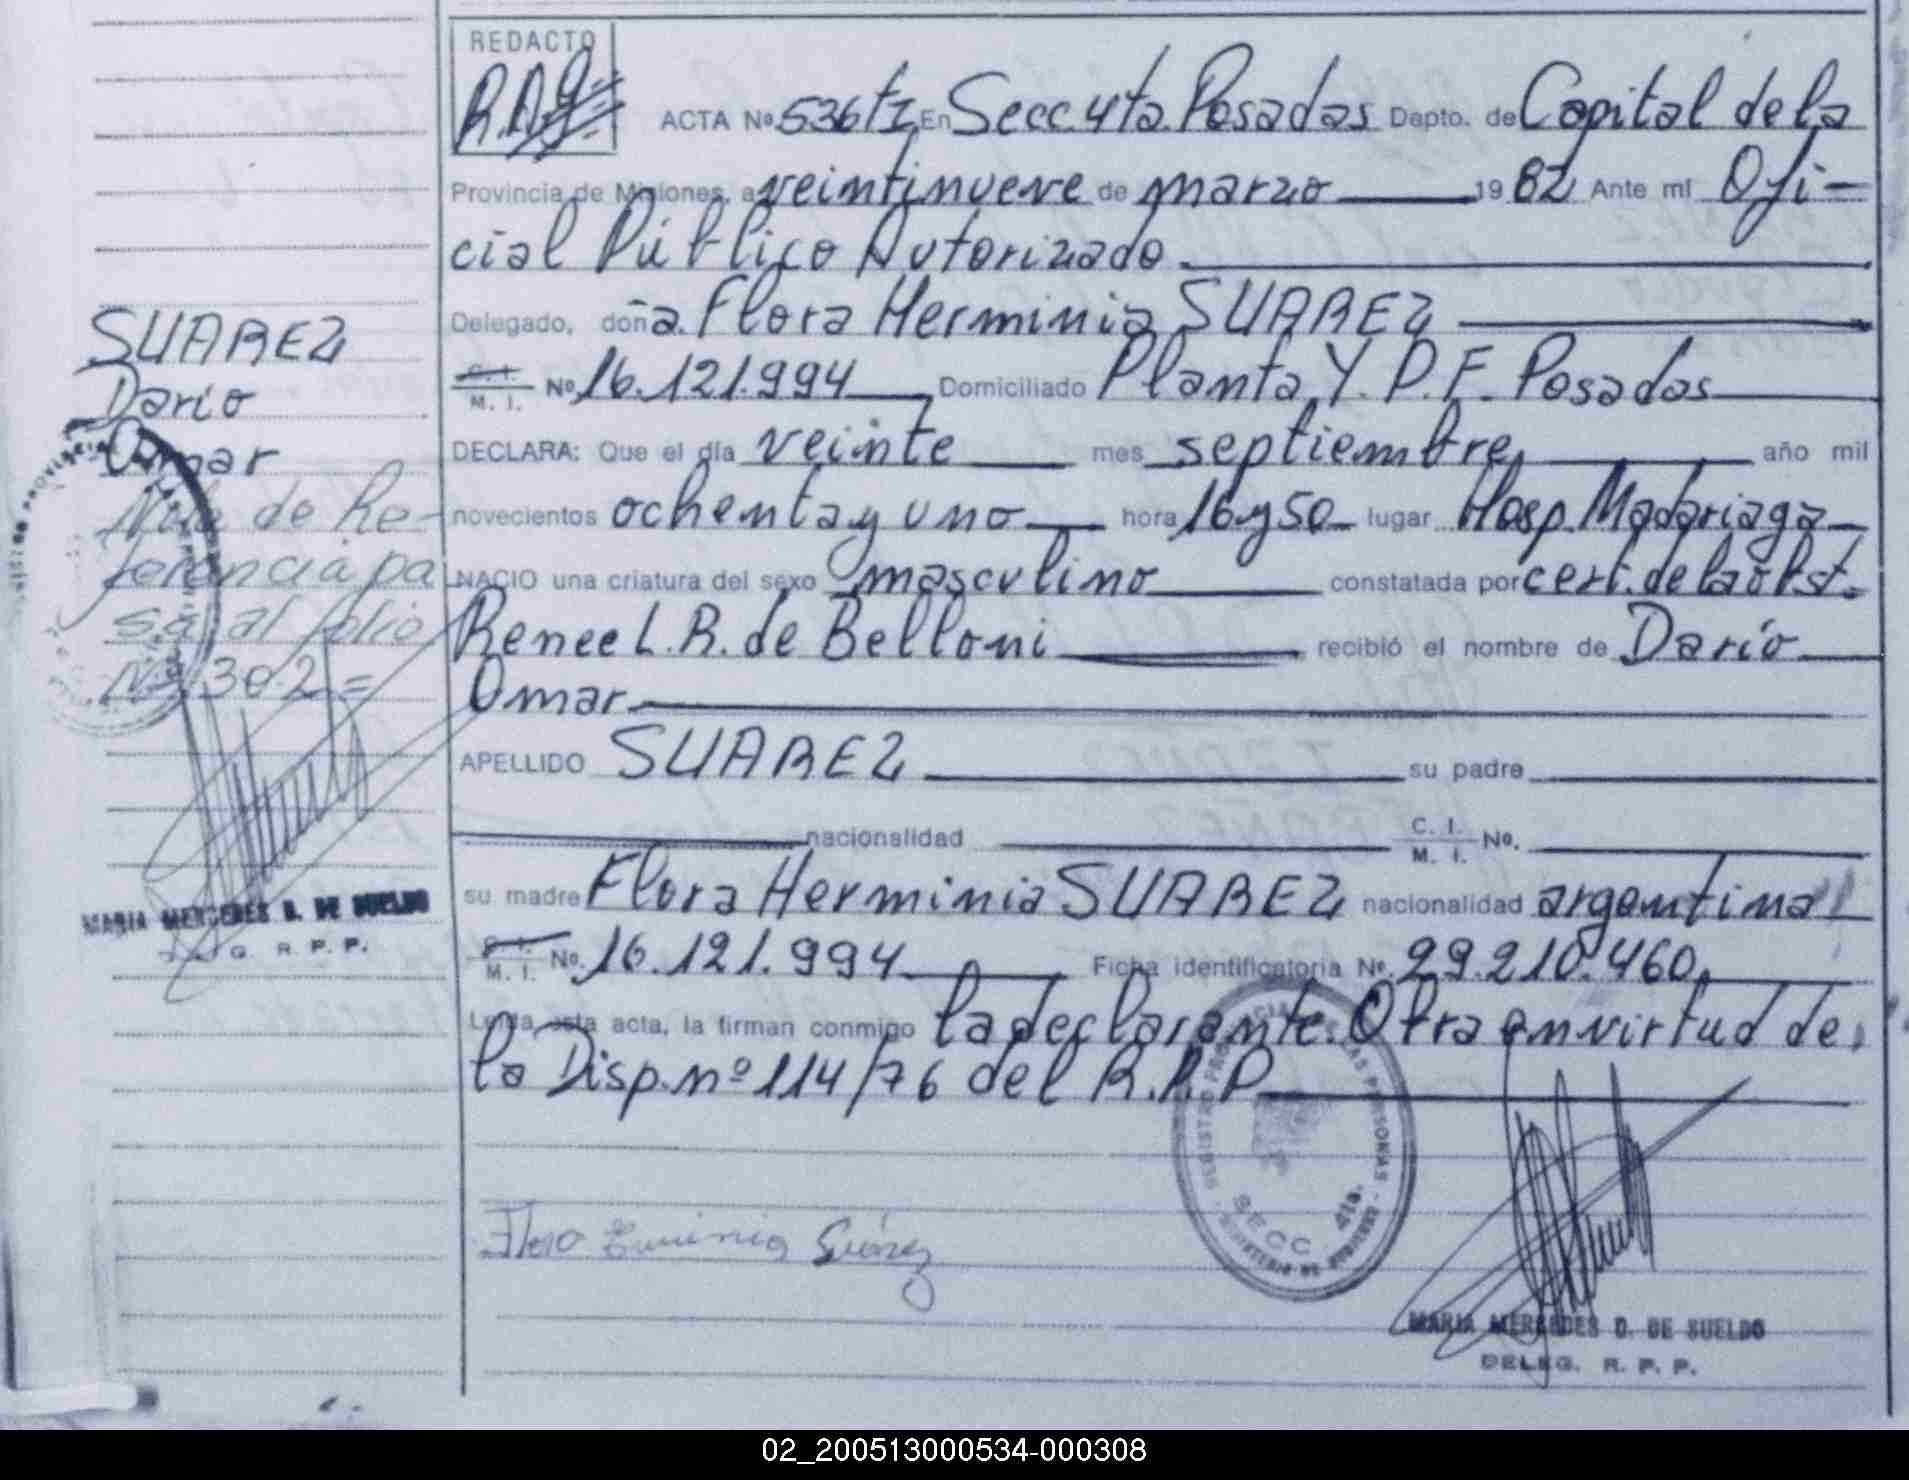 REDACTO
R.A.g.
ACTA Nº 536 tI En Secc. 4ta. Posadas Depto. de Capital de la
Provincia de Misiones, a veintinueve de marzo 19 82 Ante mí Ofi-
cial Público Autorizado
Delegado, doña. Flora Herminia SUAREZ
C. I. M. I. Nº 16.121.994 Domiciliado Planta Y.P.F. Posadas
DECLARA: Que el día veinte mes septiembre año mil
novecientos ochenta y uno hora 16 y 50 lugar Hosp. Madariaga
NACIO una criatura del sexo masculino constatada por cert. de la obst.
Renee L. R. de Belloni recibió el nombre de Darío
Omar
APELLIDO SUAREZ su padre
nacionalidad C. I. M. I. Nº.
su madre Flora Herminia SUAREZ nacionalidad argentina
C. I. M. I. Nº. 16.121.994 Ficha identificatoria Nº. 29.210.460
Leída esta acta, la firman conmigo la declarante. Obra en virtud de
la Disp. nº 114/76 del R.P.P
Flora Erminia Suárez
REGISTRO PROVINCIAL DE LAS PERSONAS
SECC 4ta.
MINISTERIO DE GOBIERNO
MARIA MERCEDES D. DE SUELDO
DELEG. R. P. P.
SUAREZ
Darío
Omar
Nota de Re-
ferencia pa
sa al folio
Nº 302=
MARIA MERCEDES D. DE SUELDO
R. P. P.
02_200513000534-000308